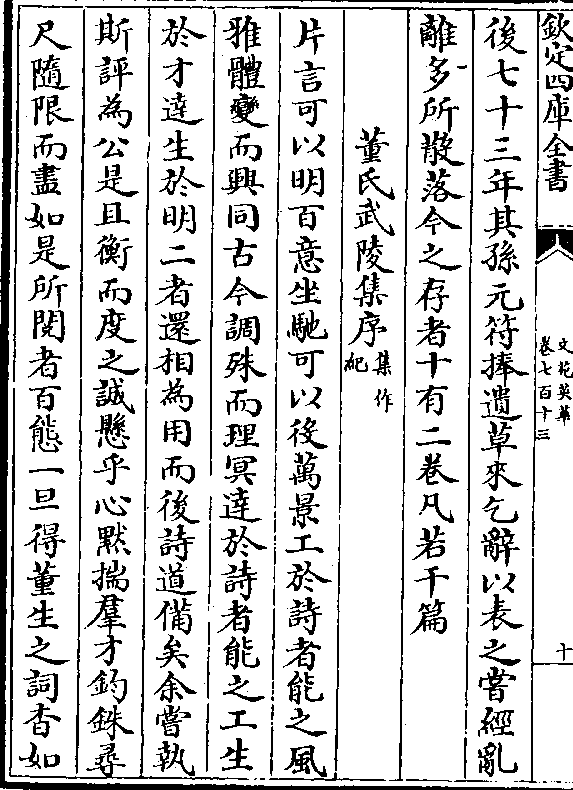 欽定四庫全書
文苑英華
卷七百十三
十
後七十三年其孫元符捧遺草來乞辭以表之嘗經亂
離多所散落今之存者十有二卷凡若干篇
董氏武陵集序集作紀
片言可以明百意坐馳可以役萬景工於詩者能之風
雅體變而興同古今調殊而理冥達於詩者能之工生
於才達生於明二者還相為用而後詩道備矣余嘗執
斯評為公是且衡而度之誠懸乎心默揣羣才鈞銖尋
尺隨限而盡如是所閱者百態一旦得董生之詞杳如